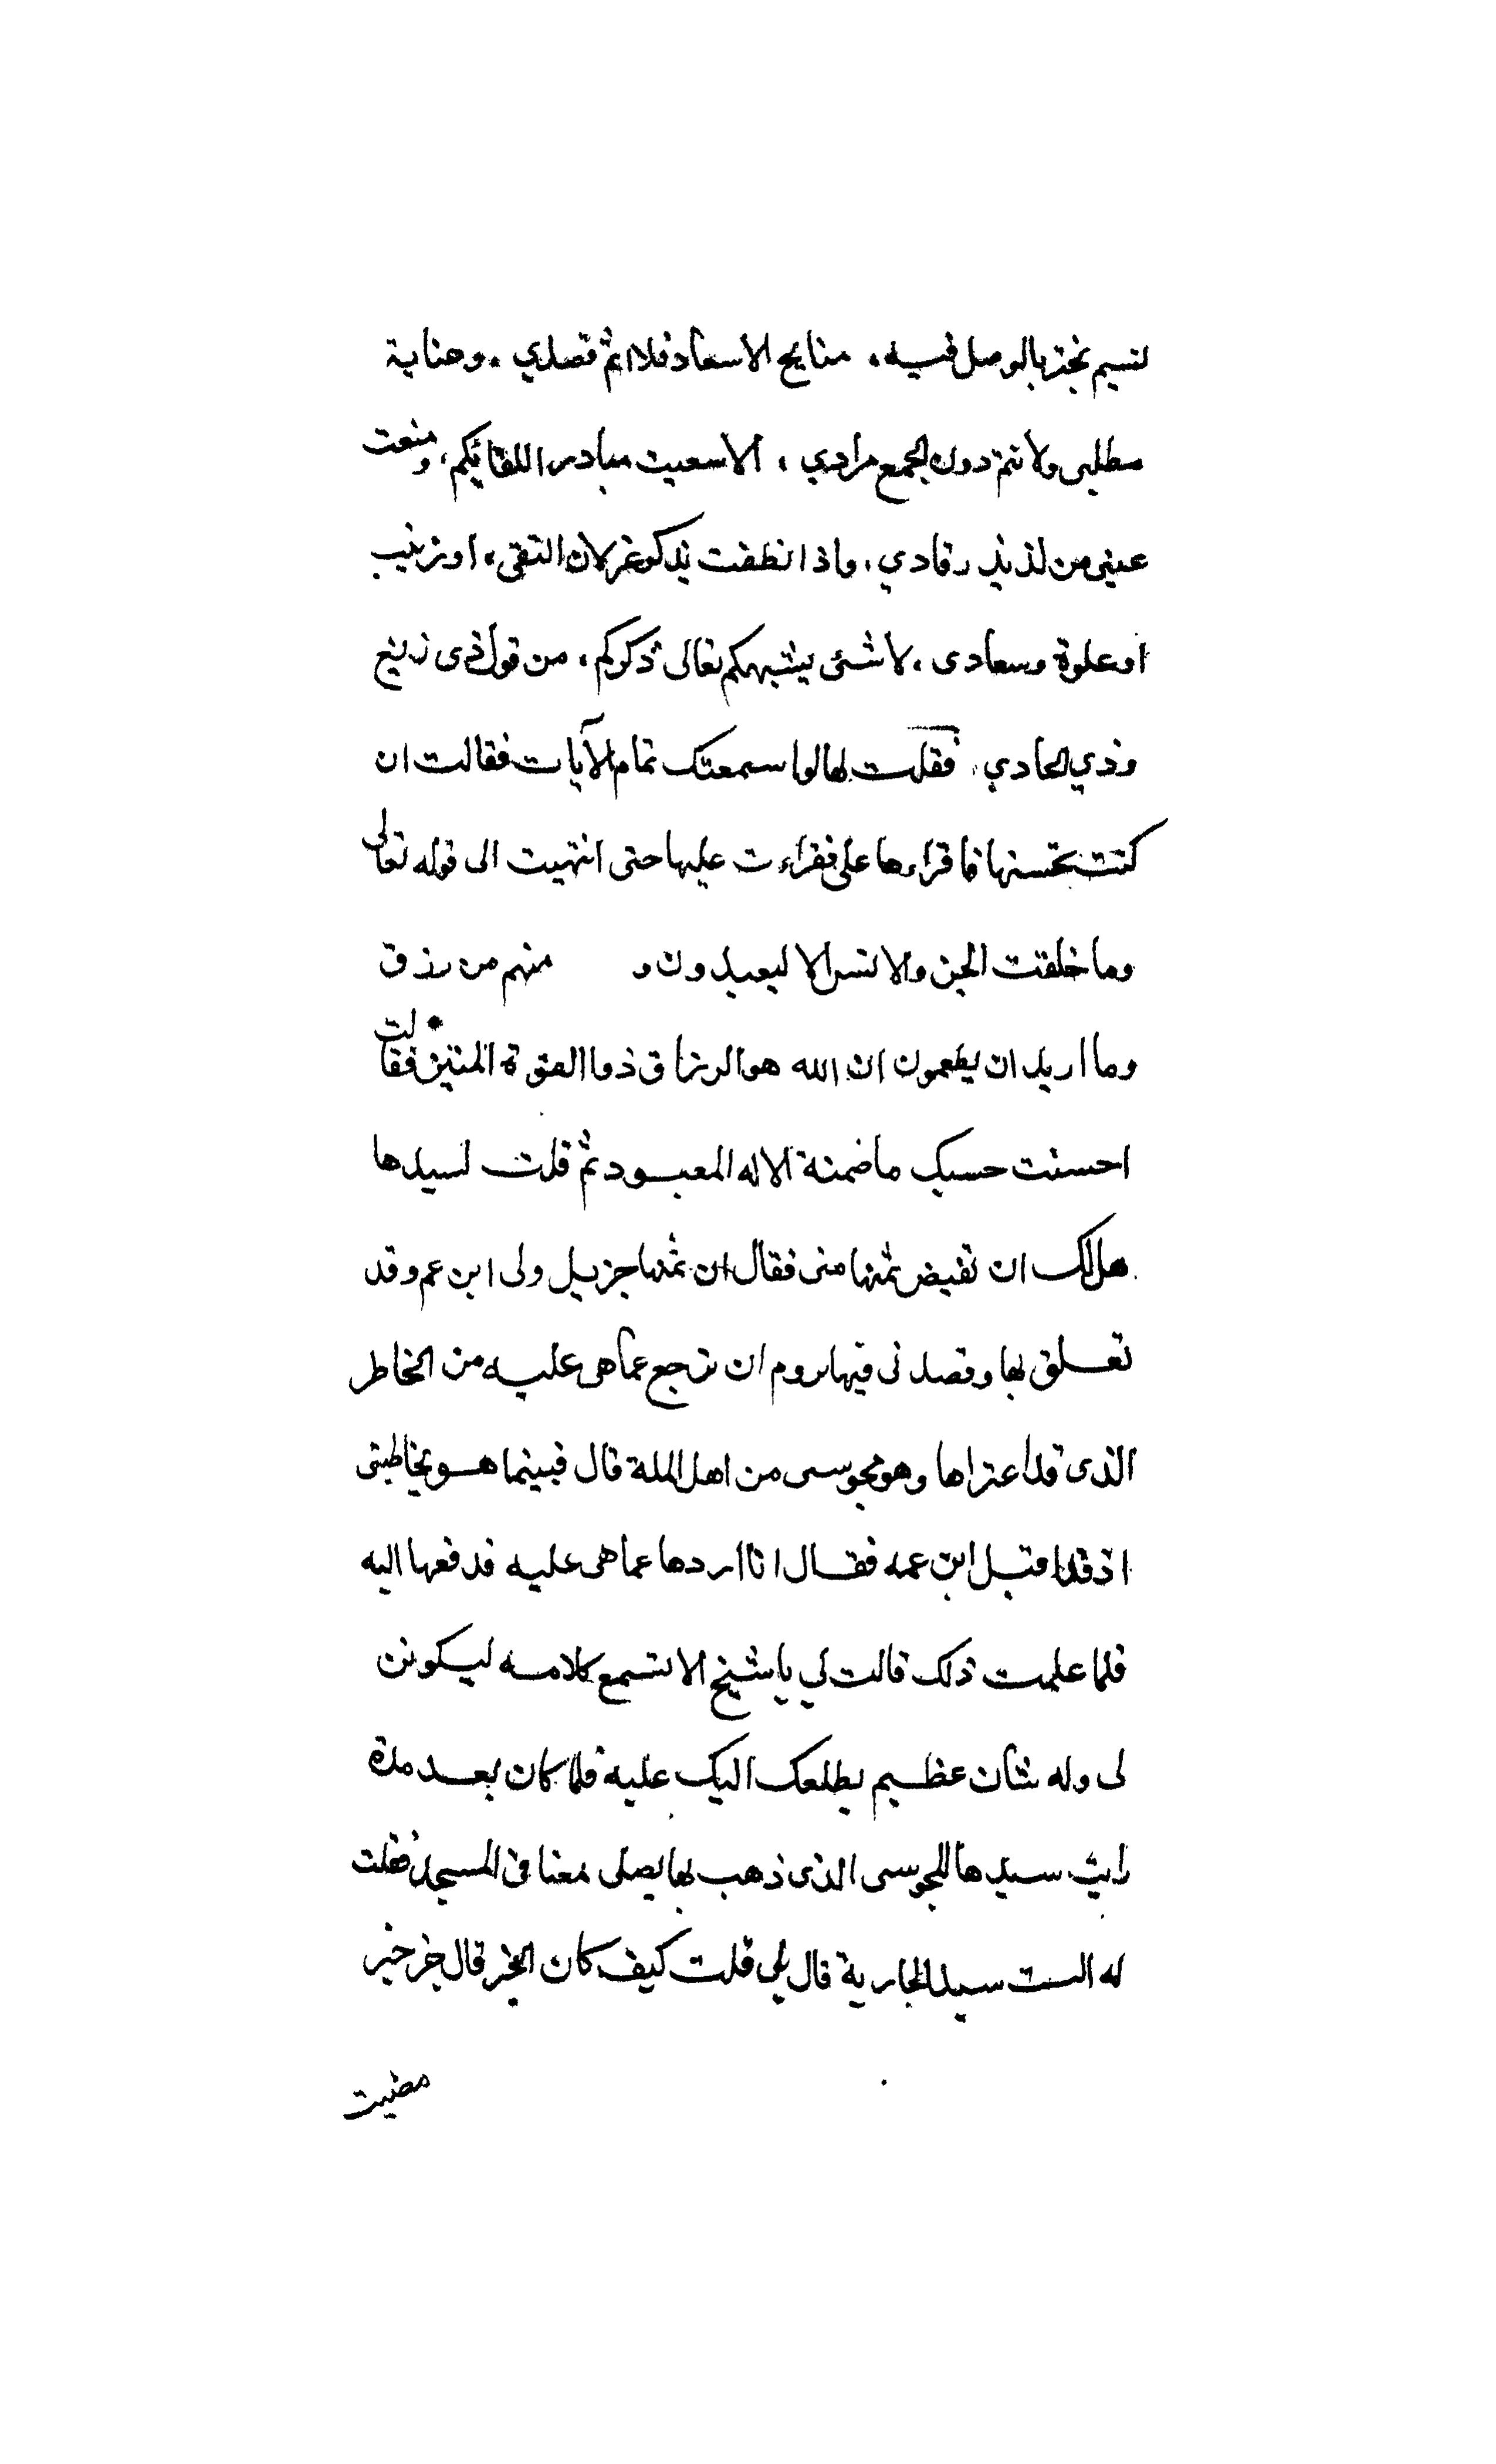 لنسيم نجد بالوصل فيه، منايح الاسعاد فلا اتم قصدي، وهناية
مطلبى ولا تتم دون الجمع مرادي، الا سعيت مبادرا للقائيكم، ومنعت
عينى من لذيذ رقادي، واذا نطقت بذكر غزلان النقى، او زينب
او علوة وسعادى، لا شئ يشبهكم تعالى ذكركم، من قول ذى زيغ
وذي الحادي، فقلت لها لو اسمعتك تمام الآيات فقالت ان
كنت تحسنها فاقراءها على فقراءت عليها حتى انتهيت الى قوله تعالى
وما خلقت الجن والانس الا ليعبدون و منهم من رزق
وما اريد ان يطعمون ان الله هو الرزاق ذوا القوة المتين فقالت
احسنت حسبك ما ضمنه الاله المعبود ثم قلت لسيدها
هل لك ان تقبض ثمنها منى فقال ان ثمنها جزيل ولى ابن عم وقد
تعلق بها وقصدنى فيها يروم ان ترجع عما هى عليه من الخاطر
الذى قد اعتراها وهو مجوسى من اهل الملة قال فبينما هو يخاطبنى
اذ قد اقبل ابن عمه فقال انا اردها عما هى عليه فدفعها اليه
فلما علمت ذلك قالت لي يا شيخ الا تسمع كلامه ليكونن
لى وله شأن عظيم يطلعك اليك عليه فلما كان بعد مدة
رايت سيدها المجوسى الذى ذهب بها يصلى معنا فى المسجد فقلت
له الست سيد الجارية قال بلى قلت كيف كان الخبر قال خبر خير
مضيت